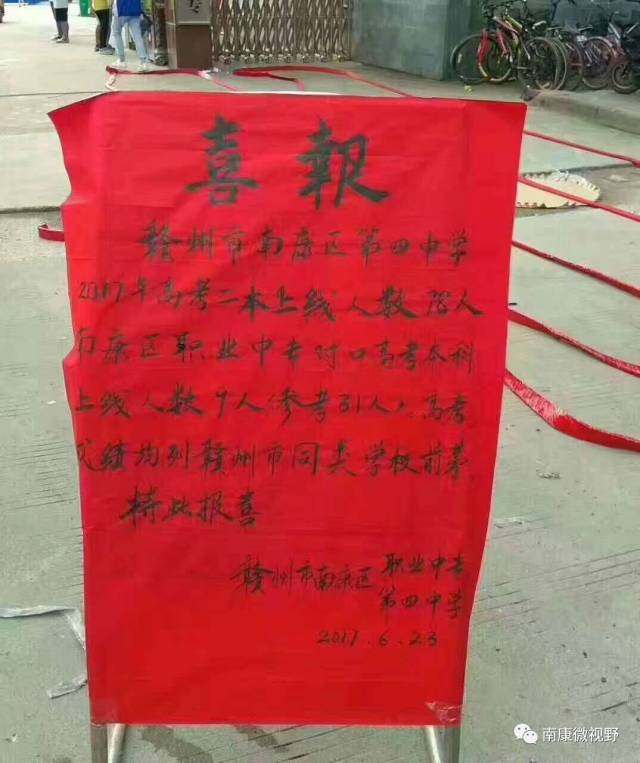 喜報
赣州市南康区第四中学
2017年高考二本上线人数78人
南康区职业中专对口高考本科
上线人数9人(参考31人),高考
成绩均列赣州市同类学校前茅
特此报喜
赣州市南康区 职业中专
第四中学
2017.6.23
南康微视野